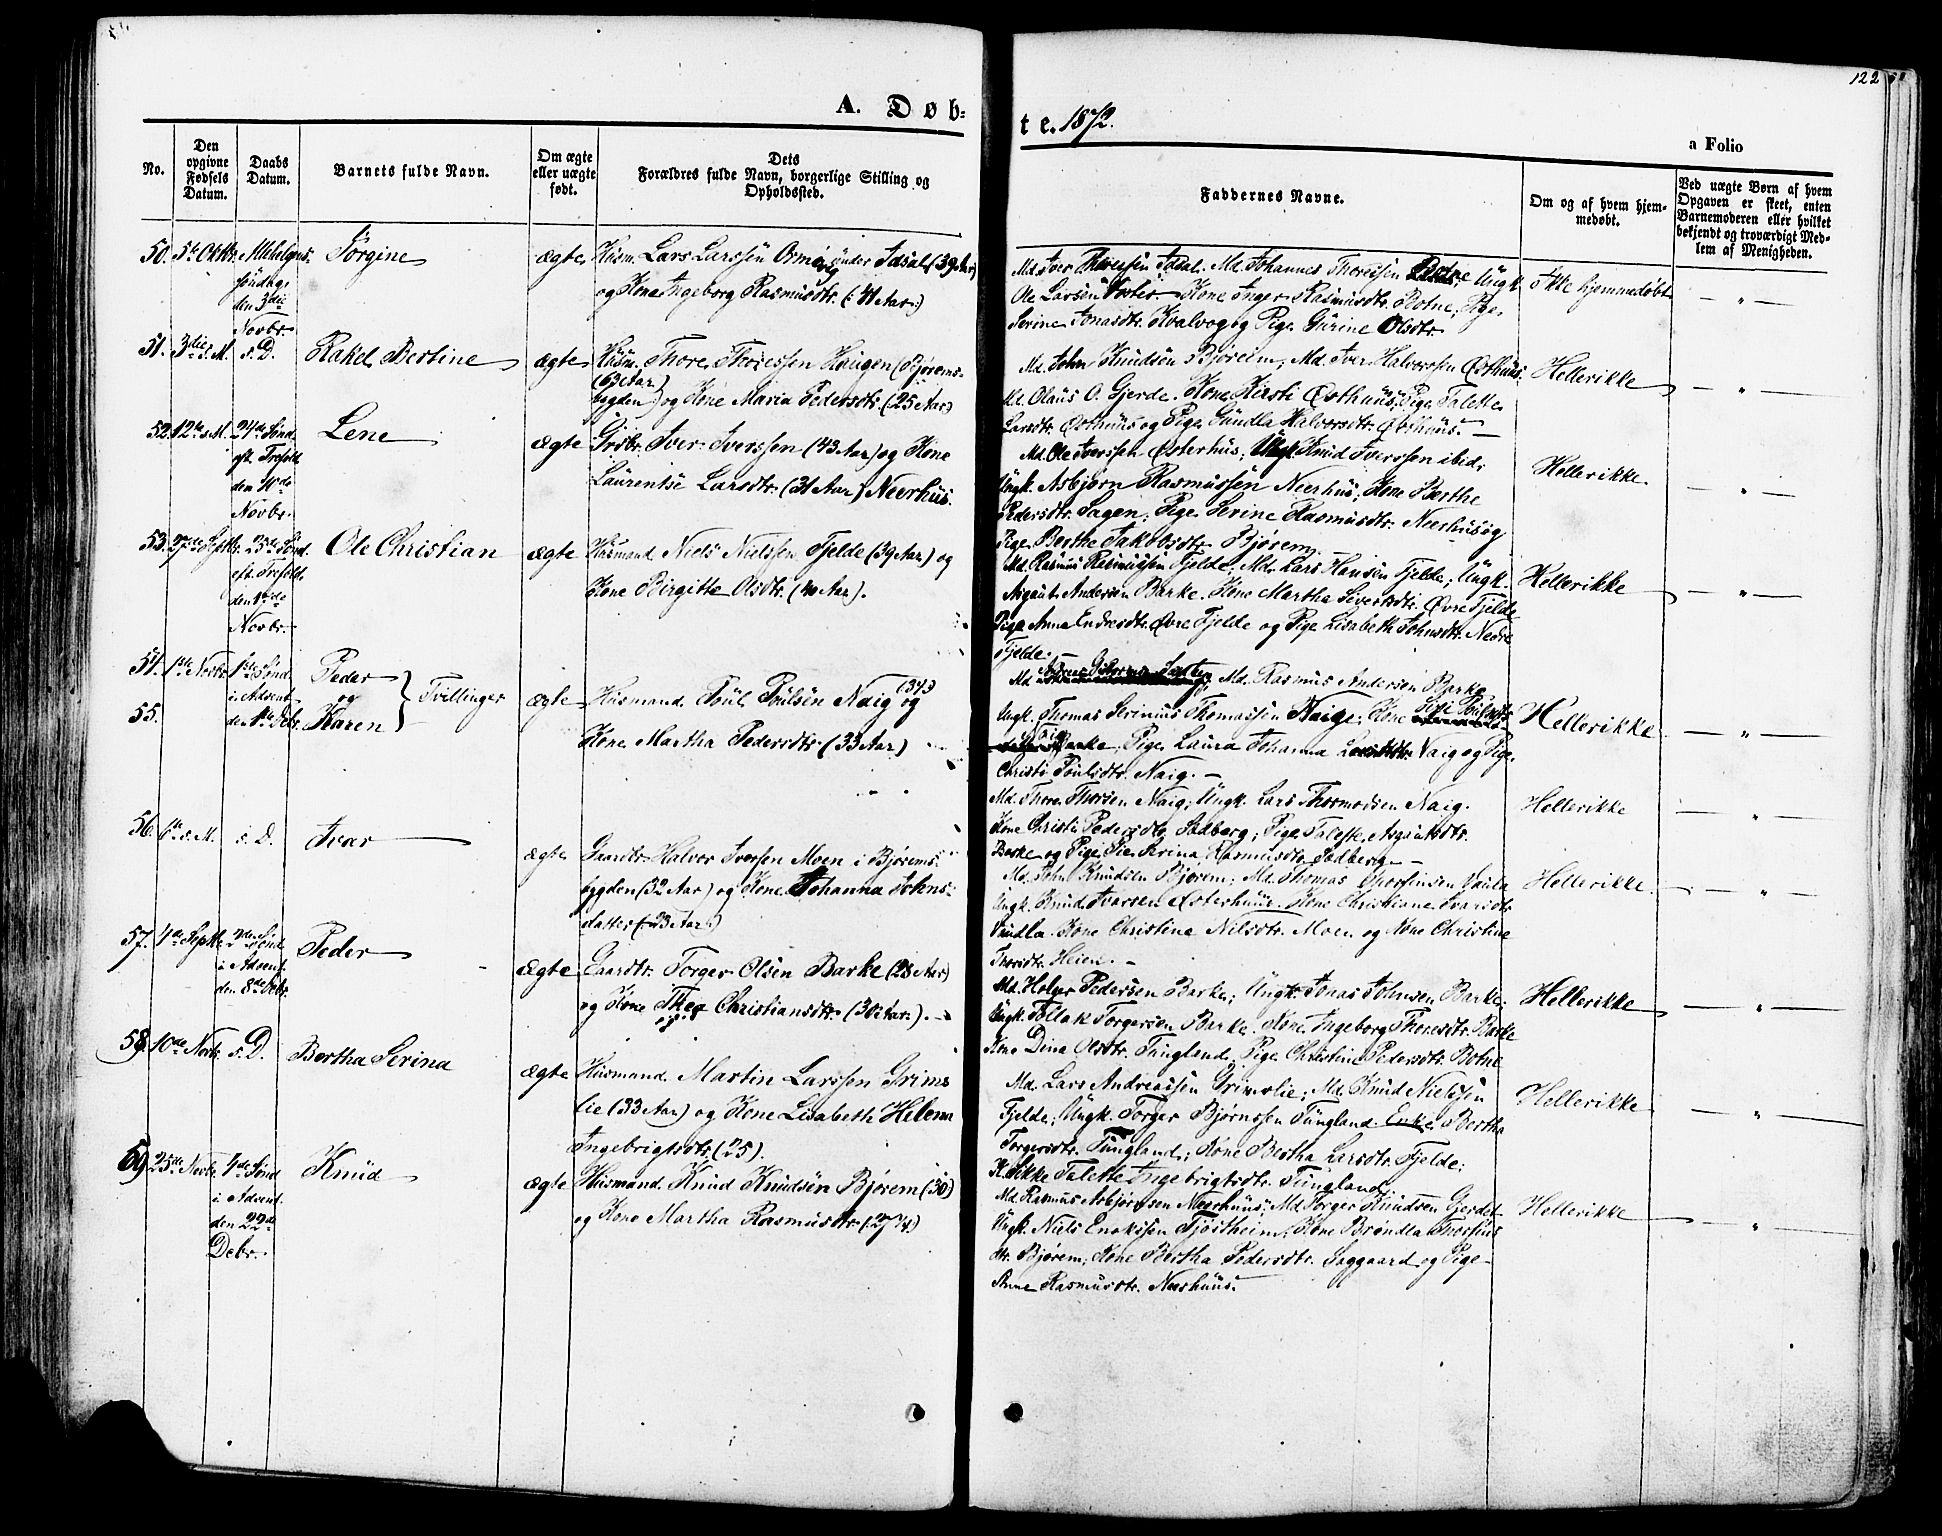 122
A. Døb-
te. 1872.
a Folio
No.
Den opgivne Fødsels Datum.
Daabs Datum.
Barnets fulde Navn.
Om ægte eller uægte født.
Dets Forældres fulde Navn, borgerlige Stilling og Opholdssted.
Faddernes Navne.
Om og af hvem hjemmedøbt.
Ved uægte Børn af hvem Opgaven er skeet, enten Barnemoderen eller hvilket bekjendt og troværdigt Medlem af Menigheden.
50. 5te Oktbr. Allehelgens
søndag,
den 3die
Novbr.
Torgine
ægte
Husm. Lars Larssen under Idsal (39 Aar)
og Kone Ingeborg Rasmusdtr. (41 Aar.)
Md. Iver Thoressen Idsal. Md. Johannes Thoressen Botne Ungk.
Ole Larsen Kone Inger Rasmusdtr. Botne, Pige
Serine Jonasdtr. Kvalvog og Pige Gurine Olsdtr.
Ikke hjemmedøbt
51. 3die s. M. s. D.
Rakel Bertine
ægte
Husm. Thore Thoressen Haugen (Bjørems-
bygden) (63 Aar) og Kone Maria Pedersdtr. (25 Aar)
Md. John Knudsen Bjøreim, Md. Iver Halvorssen Østhuus.
Md. Olaus O. Gjerde. Kone Kirsti Østhuus, Pige Talette
Larsdtr. Østhuus og Pige Gundla Halvorsdtr. Østhuus.
Hellerikke
52. 12te s. M. 24de Sønd.
eft. Trefold.
den 10de
Novbr.
Lene
ægte
Grdbr. Iver Iverssen (43 Aar) og Kone
Laurentse Larsdtr. (31 Aar) Neerhus.
Md. Ole Iverssen Østerhus, Ungk. Knud Iverssen ibid,
Ungk. Asbjørn Rasmussen Neerhus, Kone Berthe
Pedersdtr. Sagen, Pige Serine Rasmusdtr. Neerhus og
Pige Berthe Jakobsdtr. Bjørem.
Hellerikke.
53. 27de Septbr. 25de Sønd.
eft. Trefold.
den
Novbr.
Ole Christian
ægte
Husmand Niels Nielsen Fjelde (39 Aar) og
Kone Birgitte Olsdtr. (40 Aar).
Md. Rasmus Rasmussen Fjelde, Md. Lars Hansen Fjelde, Ungk.
Asgaut Andersen Barke. Kone Martha Sivertsdtr. Øvre Fjelde
Pige Anna Endresdtr. Øvre Fjelde og Pige Lisabeth Johnsdtr. Nedre
Fjelde.
Hellerikke
54. 1ste Novbr. 1ste Sønd.
55. i Advent
den 1ste Debr.
Peder
og
Karen
Tvillinger
ægte
Husmand Poul Poulsen Naig (37) og
Kone Martha Pedersdtr. (33 Aar)
Md. Md. Rasmus Andersen Barke
Ungk. Thomas Serinius Thomassen Naige, Kone
Barke, Pige Laura Johanna Naig og Pige
Christi Poulsdtr. Naig.
Hellerikke
Md. Thore Thorsen Naig, Ungk. Lars Thormodsen Naig.
Kone Christi Pedersdtr. Sadberg, Pige Talette Asgautsdtr.
Barke og Pige Sie Serina Rasmusdtr. Sadberg
Hellerikke
56. 6te s. M. s. D.
Ivar
ægte
Gaardbr. Halvor Iversen Moen i Bjørems-
bygden (32 Aar) og Kone Johanna Johns-
datter (23 Aar.)
Md. John Knudsen Bjørem, Md. Thomas Thorsinsen Vaula
Ungk. Knud Ivarsen Østerhuus. Kone Christiane Ivarsdtr.
Kone Christina Nilsdtr. Moen og Kone Christine
Thorsdtr. Heien.
Hellerikke
57. 4de Septbr. 2den Sønd.
i Advent
den 8de Debr.
Peder
ægte
Gaardbr. Torger Olsen Barke (28 Aar)
og Kone Thea Christiansdtr. (30 Aar).
Md. Holger Pedersen Barke, Ungk. Jonas Johnsen Barke,
Ungk. Tollak Torgersen Barke. Kone Ingeborg Thoresdtr. Barke
Kone Dina Olsdtr. Tungland, Pige Christine Pedersdtr. Botne
Hellerikke
58. 10de Novbr. s. D.
Bertha Serina
ægte
Husmand Martin Larssen Grims
lie (33 Aar) og Kone Lisabeth Helena
Ingebrigtsdtr. (25).
Md. Lars Andreassen Grimslie, Md. Knud Nielssen
Fjelde, Ungk. Torger Bjørnssen Tungland. Enke Bertha
Torgersdtr. Tungland, Kone Bertha Larsdtr. Fjelde,
Talette Ingebrigtsdtr. Tungland
Hellerikke
59. 25de Novbr. 4de Sønd.
i Advent.
den 22de
Debr.
Knud
ægte
Husmand Knud Knudsen Bjørem (30)
og Kone Martha Rasmusdtr. (27 A.)
Md. Rasmus Asbjørnsen Neerhuus, Md. Torger Knudsen Gjerdet
Ungk. Niels Enokssen Fjøstheim, Kone Brøndla Thorsins
dtr. Bjørem, Kone Bertha Pedersdtr. Saggaard og Pige
Anne Rasmusdtr. Neerhuus.
Hellerikke